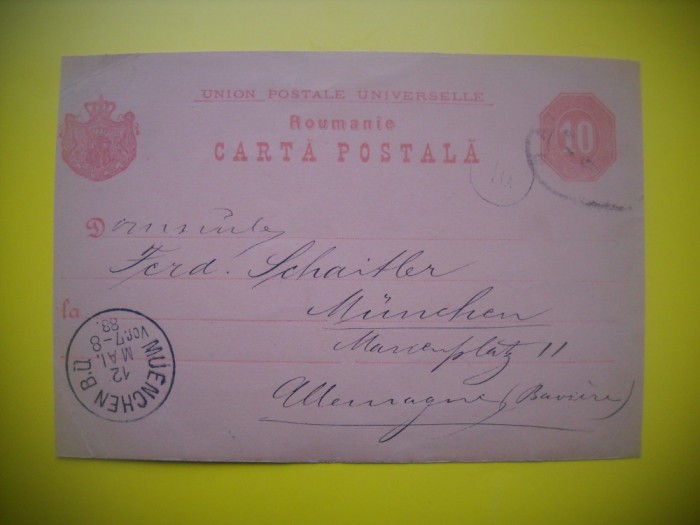 UNION POSTALE UNIVERSELLE
Roumanie
CARTĂ POSTALĂ
10
Domnului
Ferd. Schaitler
la
München
Marienplatz 11
Allemagne (Bavière)
MUENCHEN B.D.
12
MAI.
Vor.7-8
88.